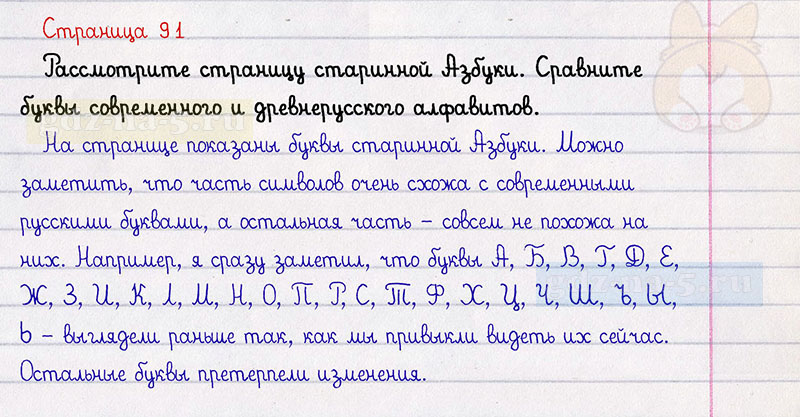 Страница 91
Рассмотрите страницу старинной Азбуки. Сравните
буквы современного и древнерусского алфавитов.
На странице показаны буквы старинной Азбуки. Можно
заметить, что часть символов очень схожа с современными
русскими буквами, а остальная часть – совсем не похожа на
них. Например, я сразу заметил, что буквы А, Б, В, Г, Д, Е,
Ж, З, И, К, Л, М, Н, О, П, Р, С, Т, Ф, Х, Ц, Ч, Ш, Ъ, Ы,
Ь – выглядели раньше так, как мы привыкли видеть их сейчас.
Остальные буквы претерпели изменения.